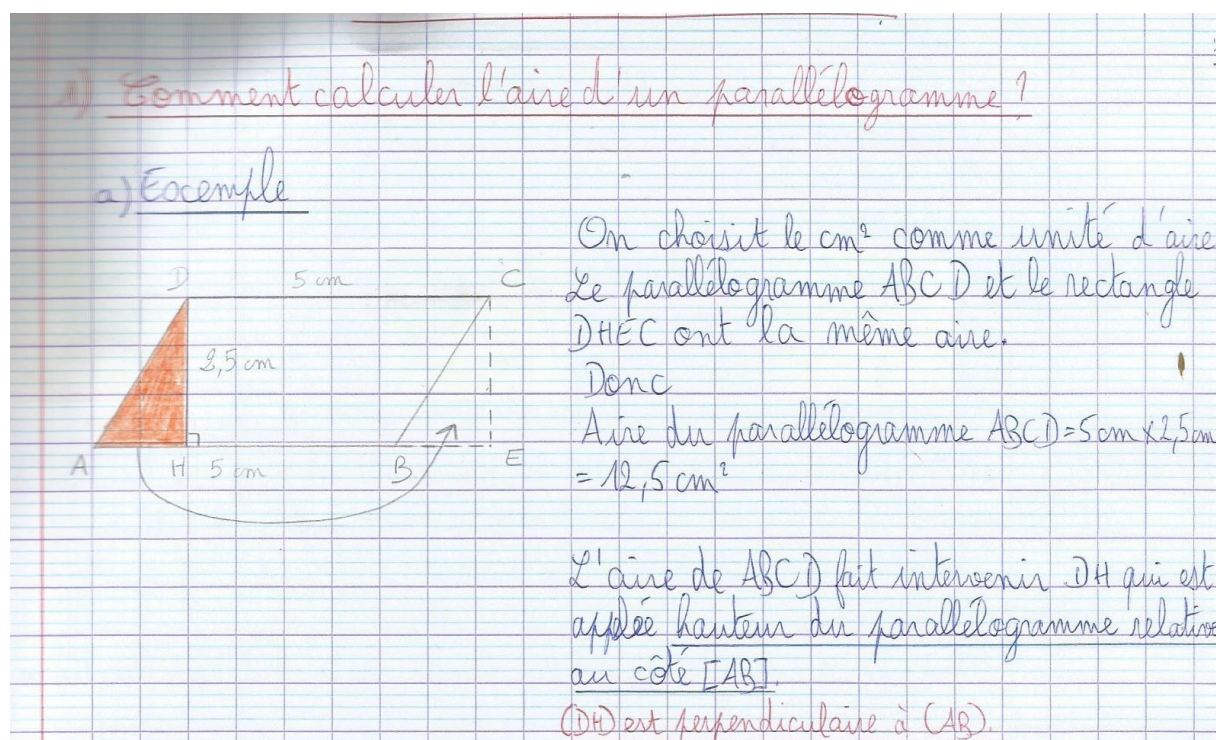 1) Comment calculer l'aire d'un parallélogramme ?
a) Exemple
On choisit le cm² comme unité d'aire
Le parallélogramme ABCD et le rectangle
DHEC ont la même aire.
Donc
Aire du parallélogramme ABCD=5cm x 2,5cm
= 12,5 cm²
D 5 cm C
2,5 cm
A H 5 cm B E
L'aire de ABCD fait intervenir DH qui est
applée hauteur du parallélogramme relative
au côté [AB].
(DH) est perpendiculaire à (AB).